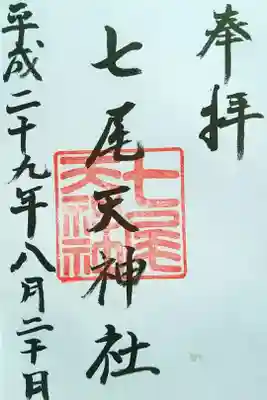 奉拝
七尾天神社
七尾天神社
平成二十九年八月二十日